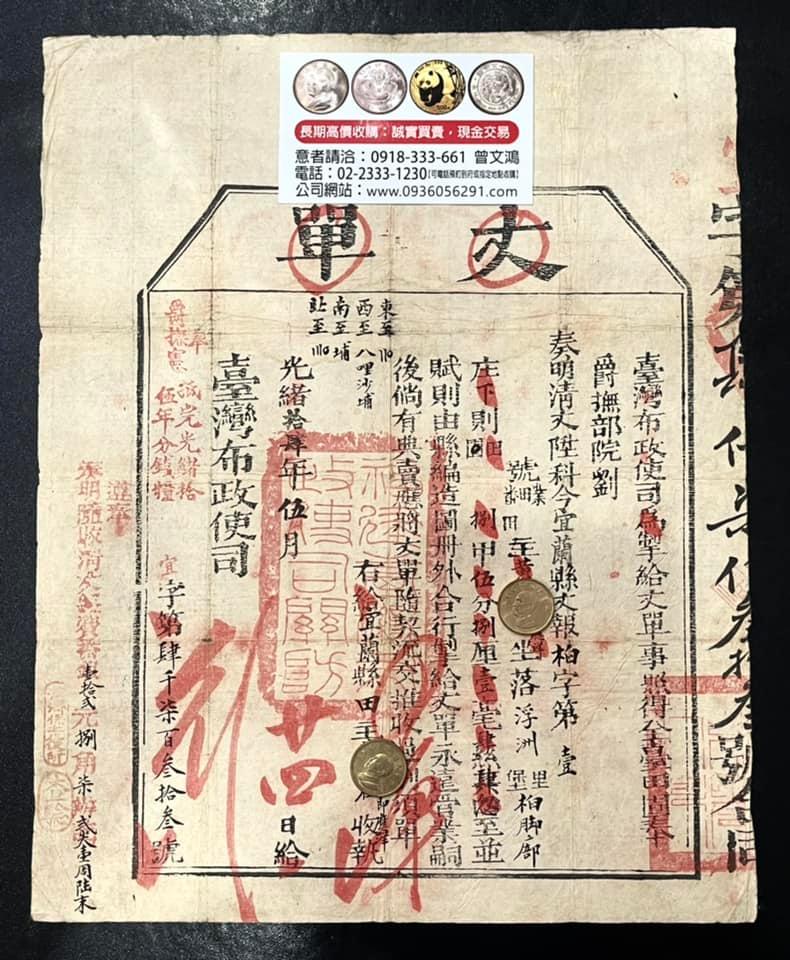 長期高價收購:誠實買賣,現金交易
意者請洽:0918-333-661 曾文鴻
電話:02-2333-1230【可電話預約到府或指定地點收購】
公司網站:www.0936056291.com
丈單
臺灣布政使司為掣給丈單事照得全臺田園奉
爵撫部院劉
奏明清丈陞科今宜蘭縣丈報柏字第壹
號 坐落浮洲堡里柏脚廍
庄下則田園 捌甲伍分捌厘壹毫肆絲肆忽至並
賦則由縣編造圖冊外合行掣給丈單永遠管業嗣
後倘有典賣應將丈單隨契流交推收過
右給宜蘭縣 田主 收執
東至
西至八哩沙埔
南至埔
北至
光緒拾肆年伍月廿四日給
臺灣布政使司
宜字第肆千柒百叁拾叁號
奉
爵撫憲
減完光緒拾
伍年分錢糧
遵奉
奏明隨收清丈經費番壹拾弍元捌角柒